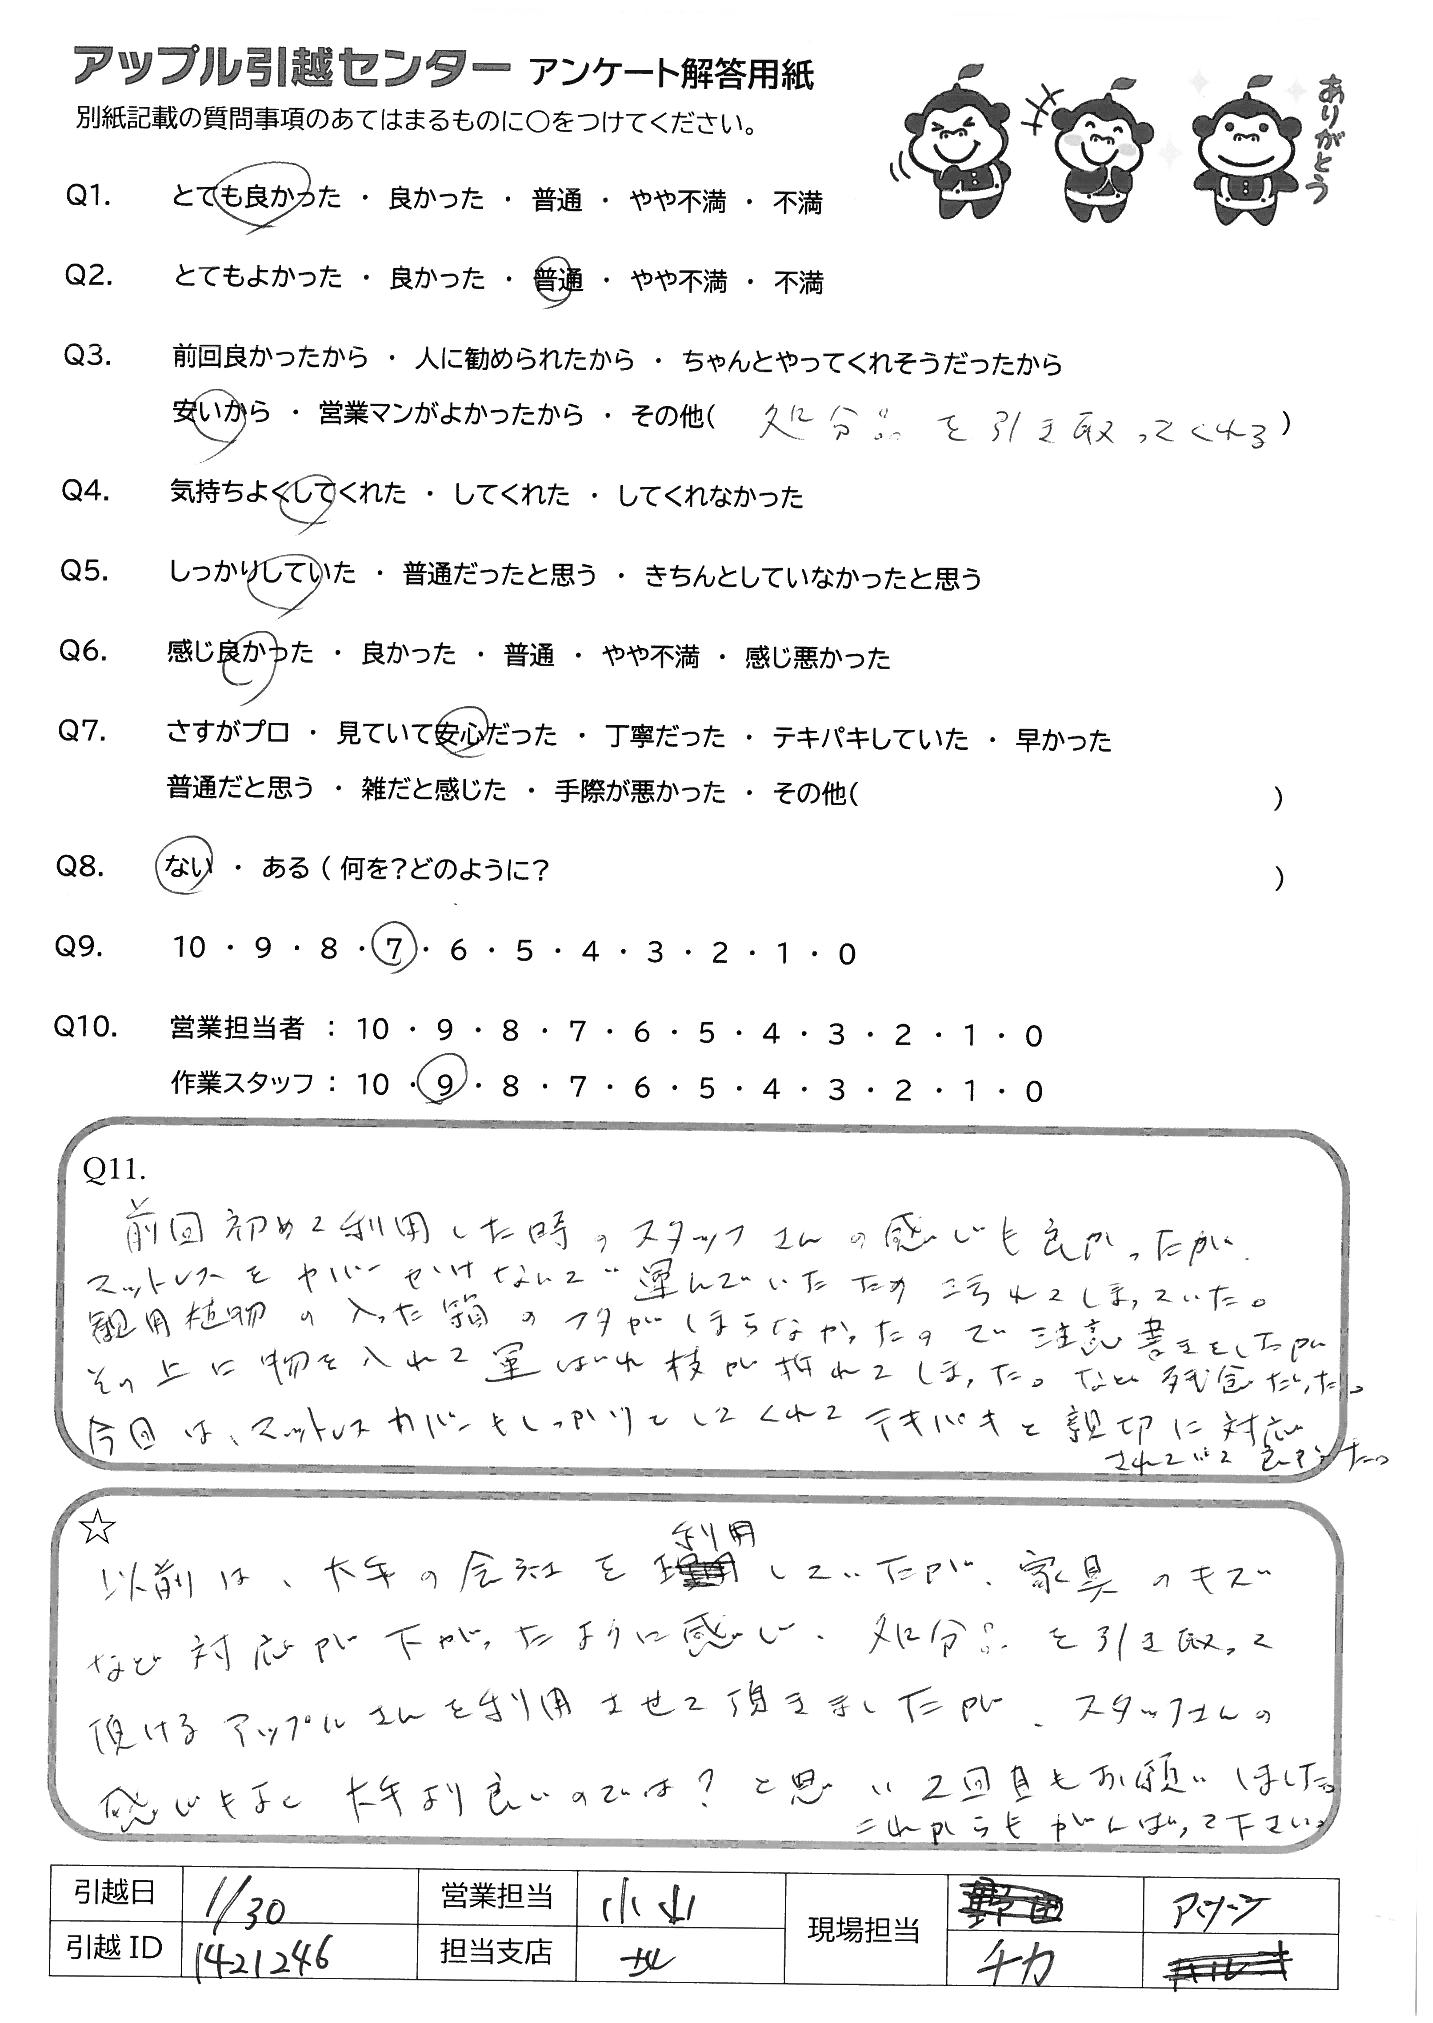 アップル引越センター アンケート解答用紙
別紙記載の質問事項のあてはまるものに○をつけてください。
ありがとう
Q1. とても良かった ・ 良かった ・ 普通 ・ やや不満 ・ 不満
Q2. とてもよかった ・ 良かった ・ 普通 ・ やや不満 ・ 不満
Q3. 前回良かったから ・ 人に勧められたから ・ ちゃんとやってくれそうだったから
安いから ・ 営業マンがよかったから ・ その他( 処分品を引き取ってくれる )
Q4. 気持ちよくしてくれた ・ してくれた ・ してくれなかった
Q5. しっかりしていた ・ 普通だったと思う ・ きちんとしていなかったと思う
Q6. 感じ良かった ・ 良かった ・ 普通 ・ やや不満 ・ 感じ悪かった
Q7. さすがプロ ・ 見ていて安心だった ・ 丁寧だった ・ テキパキしていた ・ 早かった
普通だと思う ・ 雑だと感じた ・ 手際が悪かった ・ その他( )
Q8. ない ・ ある ( 何を?どのように? )
Q9. 10 ・ 9 ・ 8 ・ 7 ・ 6 ・ 5 ・ 4 ・ 3 ・ 2 ・ 1 ・ 0
Q10. 営業担当者 : 10 ・ 9 ・ 8 ・ 7 ・ 6 ・ 5 ・ 4 ・ 3 ・ 2 ・ 1 ・ 0
作業スタッフ : 10 ・ 9 ・ 8 ・ 7 ・ 6 ・ 5 ・ 4 ・ 3 ・ 2 ・ 1 ・ 0
Q11.
前回初めて利用した時のスタッフさんの感じも良かったが、
マットレスをカバーかけないで運んでいたため汚れてしまっていた。
観用植物の入った箱のフタがしまらなかったので注意書きをしたが
その上に物を入れて運ばれ枝が折れてしまった。など残念だった。
今回は、マットレスカバーもしっかりとしてくれてテキパキと親切に対応
されていて良かった。
☆
以前は、大手の会社を利用していたが、家具のキズ
など対応が下がったように感じ、処分品を引き取って
頂けるアップルさんを利用させて頂きましたが、スタッフさんの
感じもよく大手より良いのでは?と思い2回目もお願いしました。
これからもがんばって下さい。
引越日 1/30 営業担当 小山 現場担当 アツシ
引越ID 1421246 担当支店 チカ